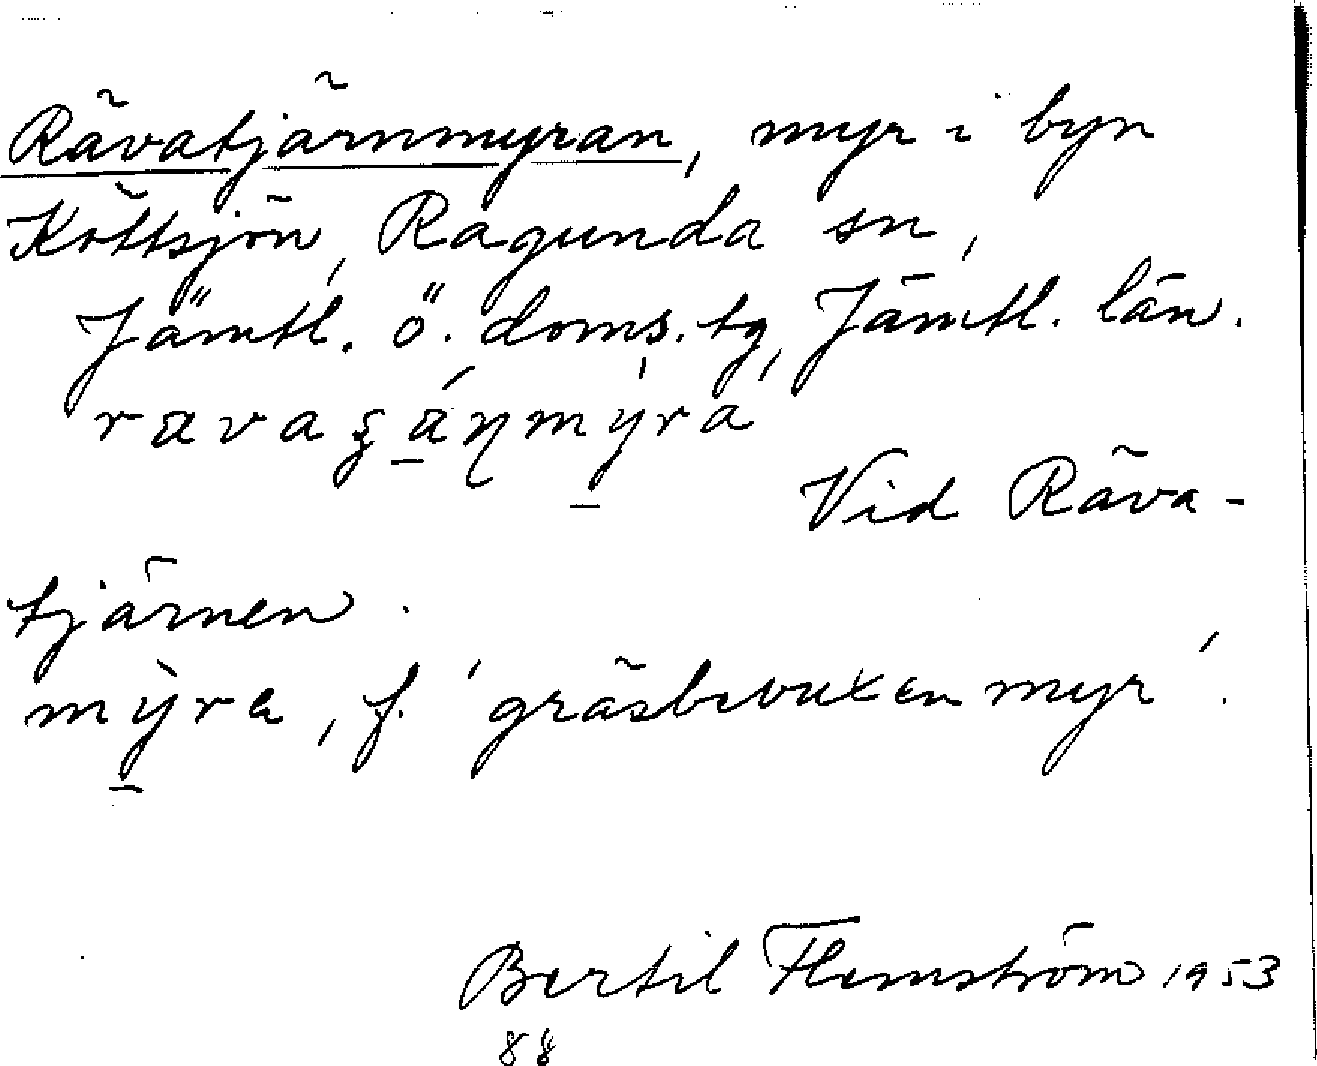 Rävatjärnmyran, myr i byn
Köttsjön, Ragunda sn,
Jämtl. ö. doms. tg, Jämtl. län.
Vid Räva-
tjärnen.
mỳra, f. 'gräsbevuxen myr'.
Bertil Flemström 1953
88